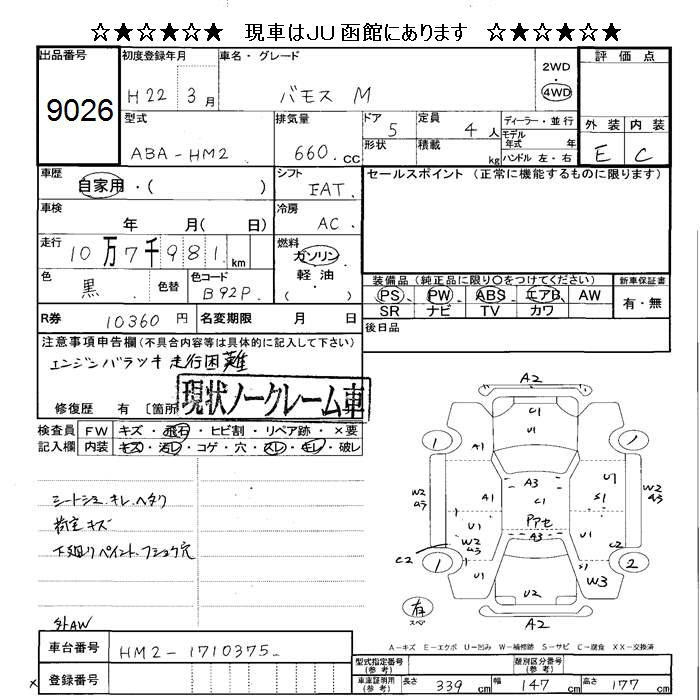 ☆★☆★☆★ 現車はJU函館にあります ☆★☆★☆★
出品番号 9026
初度登録年月 H22年3月
車名・グレード バモス M
2WD 4WD
評価点
外装 E 内装 C
型式 ABA-HM2
排気量 660.cc
ドア 5
形状
定員 4人
積載 kg
ディーラー・並行
モデル年式 年
ハンドル 左・右
車歴 自家用・( )
シフト FAT.
セールスポイント (正常に機能するものに限ります)
車検 年 月( 日)
冷房 AC.
走行 10万7千981km
燃料 ガソリン 軽油 ( )
色 黒 色替
色コード B92P.
装備品 (純正品に限り○をつけてください)
PS PW ABS エアB AW
SR ナビ TV カワ
新車保証書 有・無
R券 10360円
名変期限 月 日
後日品
注意事項申告欄(不具合内容等は具体的に記入して下さい)
エンジンバラツキ 走行困難
修復歴 有 〔箇所
現状ノークレーム車
検査員記入欄
FW キズ・飛石・ヒビ割・リペア跡・×要
内装 キズ・汚レ・コゲ・穴・スレ・キレ・破レ
シートシュ.キレ.ヘタリ
荷室キズ
下廻りペイント.フショク穴
外AW
A2
U1
1 A1 U1 1
A3
W2 ムラ A1 C1 U1 S1 W2 ムラ
PアセA3
U1 W2 ムラ U1
C2 1 U1 S1 W3 2
U2
有 スペア
A2
A-キズ E-エクボ U-凹み W-補修跡 S-サビ C-腐食 XX-交換済
車台番号 HM2-1710375.
登録番号
型式指定番号(参考)
類別区分番号(参考)
車庫証明用(参考) 長さ 339cm 幅 147cm 高さ 177cm